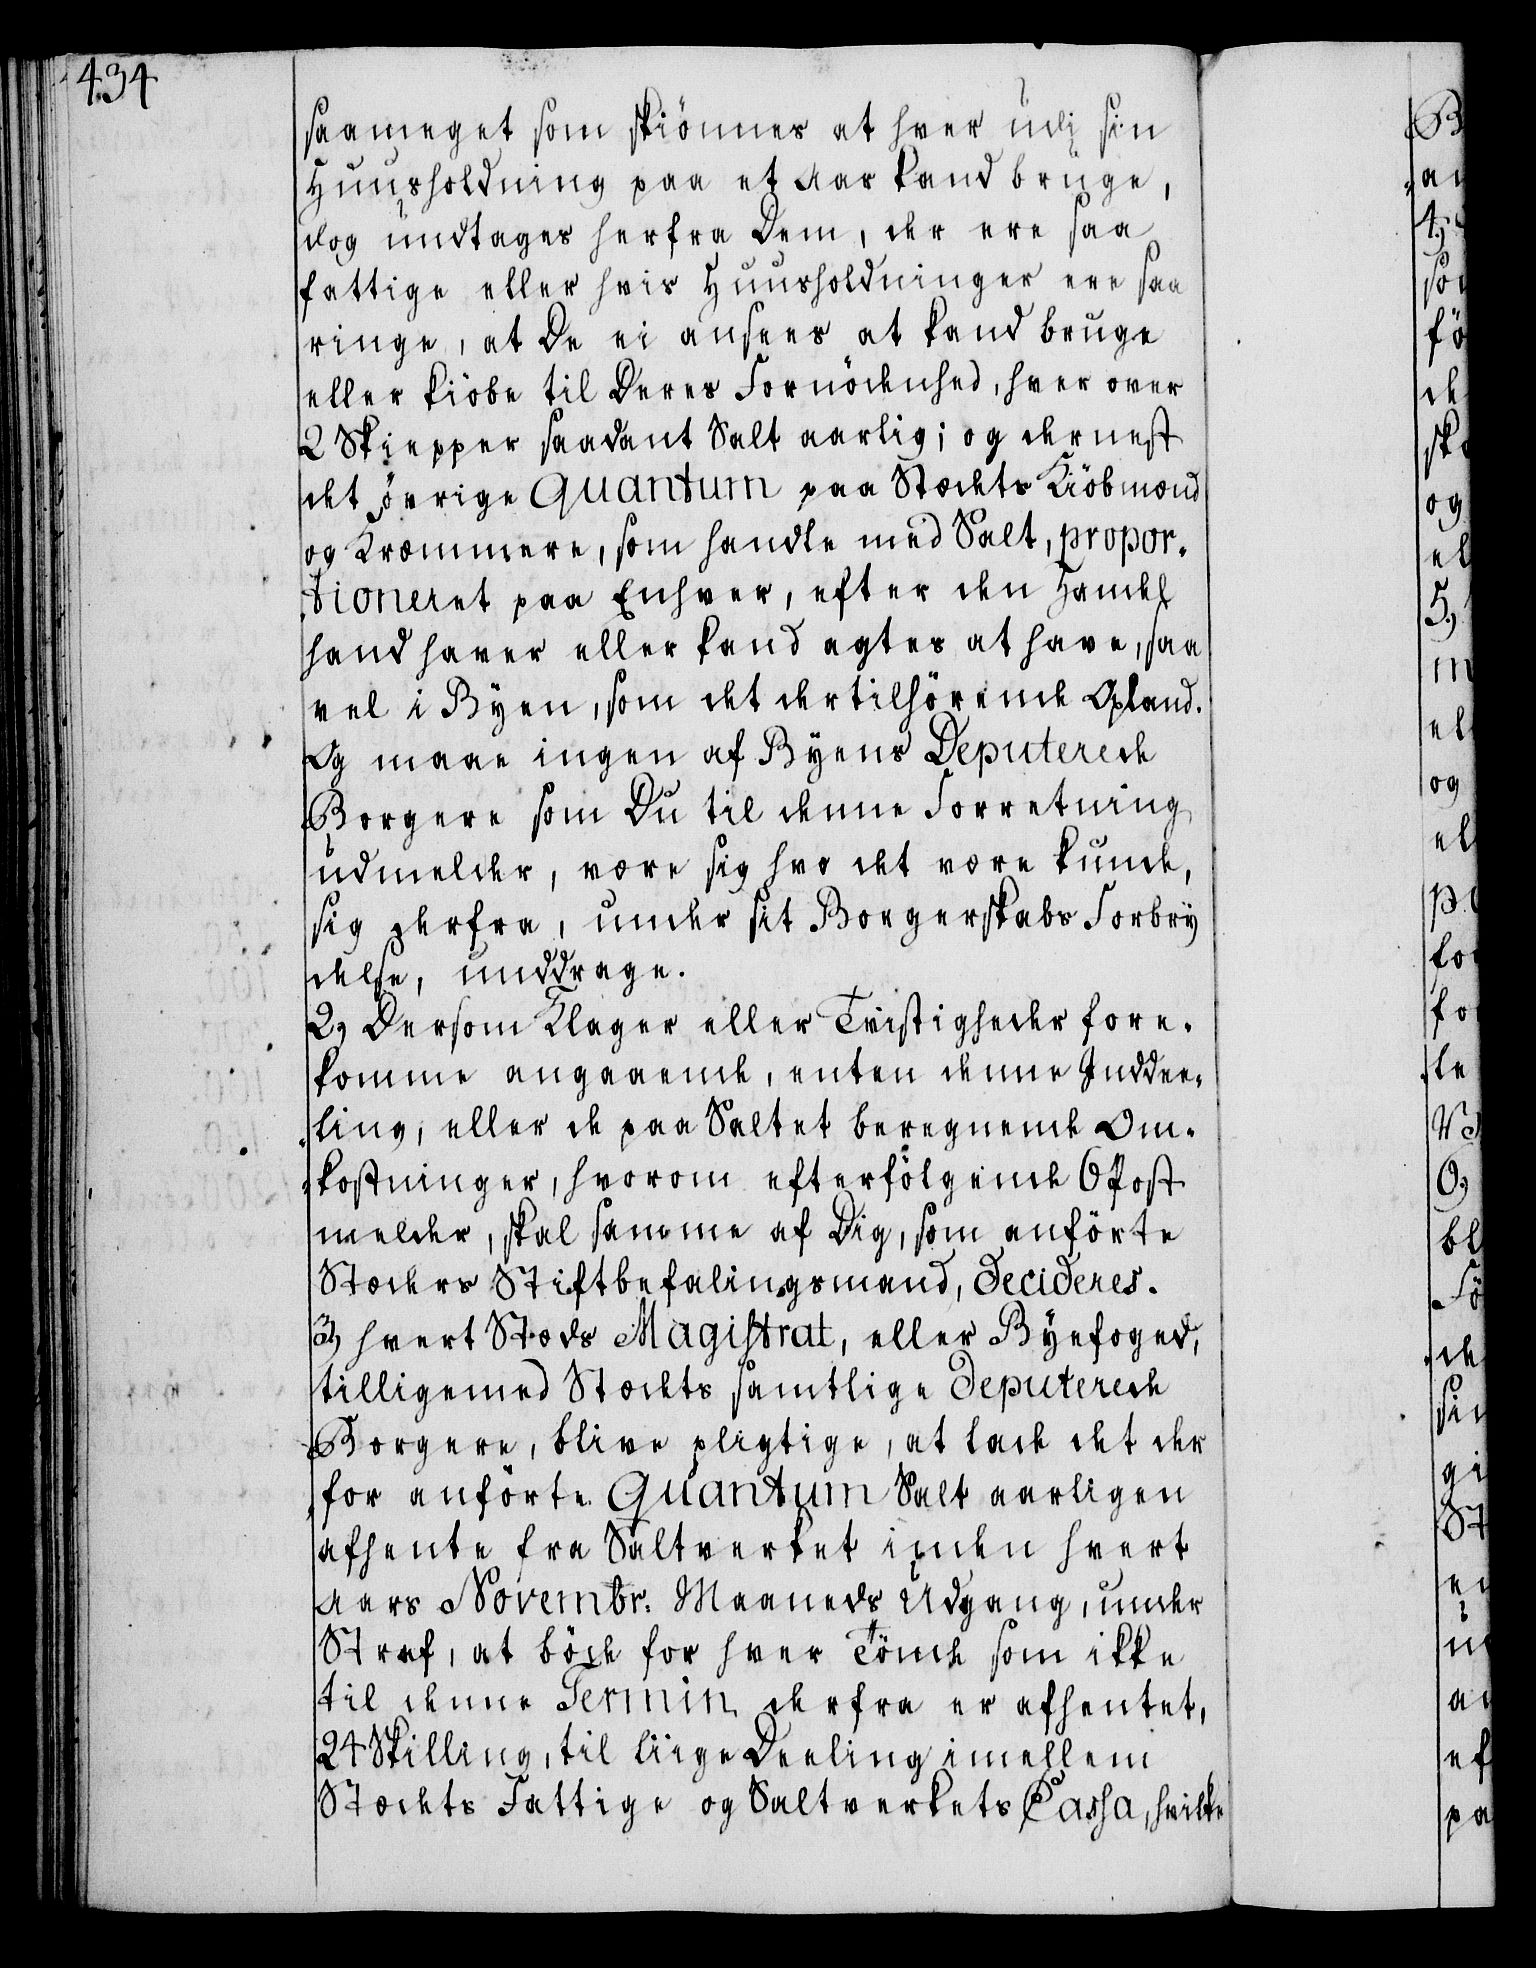 434
saameget som skiönnes at hver udi sin
Huusholdning paa et Aar kand bruge,
dog undtages herfra Dem, der ere saa
fattige eller hvis Huusholdninger ere saa
ringe, at De ei ansees at kand bruge
eller kiöbe til Deres Fornödenhed, hver over
2 Skiepper saadant Salt aarlig; og dernest
det övrige Quantum paa Stædets Kiöbmænd
og Kræmmere, som handle med Salt, propor-
tioneret paa Enhver, efter den Handel
hand haver eller kand agtes at have, saa
vel i Byen, som det dertilhörende Opland.
Og maae ingen af Byens Deputerede
Borgere som Du til denne Forretning
udmelder, være sig hvo det være kunde,
sig herfra, under sit Borgerskabs Forbry
delse, unddrage.
2, Dersom Klager eller Tvistigheder fore-
komme angaaende, enten denne Inddee-
ling, eller de paa Saltet beregnende Om-
kostninger, hvorom efterfölgende 6 Post
melder, skal samme af Dig, som anförte
Stæders Stiftbefalingsmand, decideres.
3, hvert Stæds Magistrat, eller Byefoged,
tilligemed Stædets samtlige Deputerede
Borgere, blive pligtige, at lade det der
for anförte Quantum Salt aarligen
afhente fra Saltverket inden hvert
Aars Novembr. Maaneds Udgang, under
Straf, at böde for hver Tönde som ikke
til denne Termin derfra er afhentet,
24 Skilling, til liige Deeling imellem
Stædets Fattige og Saltverkets Cassa, hvilke